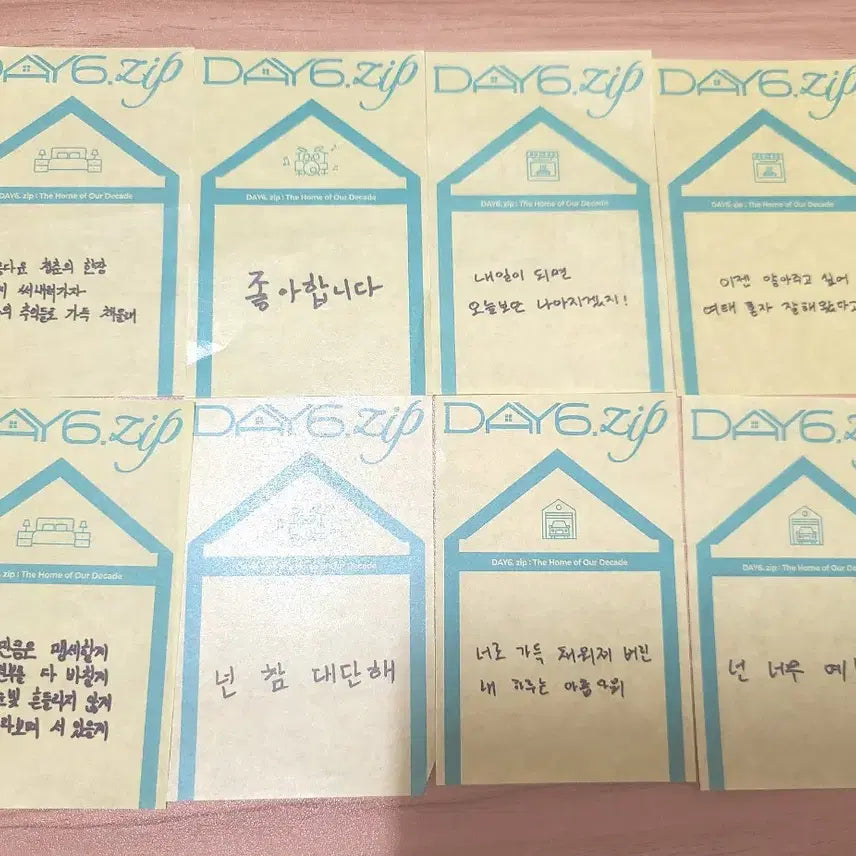 DAY6.zip
DAY6. zip : The Home of Our Decade
청춘의 한장
써내려가자
추억들로 가득 채울래
DAY6.zip
DAY6. zip : The Home of Our Decade
좋아합니다
DAY6.zip
DAY6. zip : The Home of Our Decade
내일이 되면
오늘보단 나아지겠지!
DAY6.zip
DAY6. zip : The Home of Our Decade
이젠 안아주고 싶어
여태 혼자 잘해왔다고
DAY6.zip
zip : The Home of Our Decade
만큼은 맹세할게
전부를 다 바칠게
눈빛 흔들리지 않게
바라보며 서 있을게
DAY6.zip
넌 참 대단해
DAY6.zip
DAY6. zip : The Home of Our Decade
너로 가득 채워져 버린
내 하루는 아름다워
DAY6.zip
DAY6. zip : The Home of Our
넌 너무 예